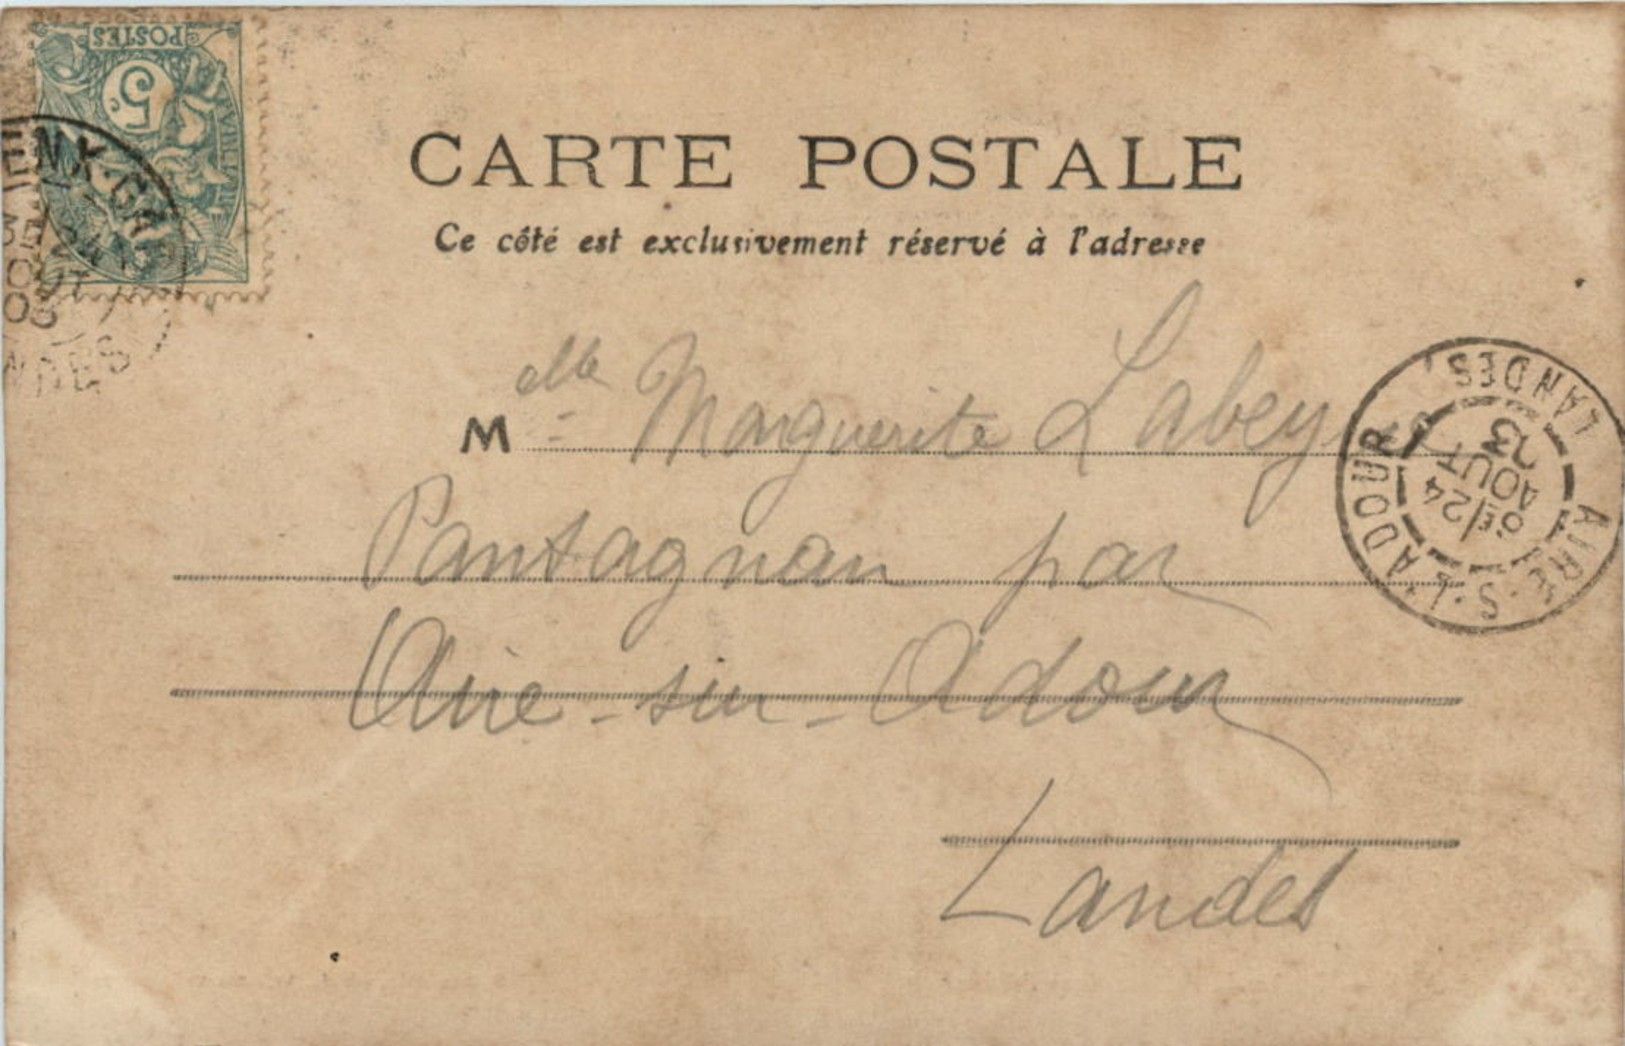 POSTES
5c
CARTE POSTALE
Ce côté est exclusivement réservé à l'adresse
Melle Marguerite Labey
Pantagnan par
Aire-sur-Adour
Landes
AIRE-S-L'ADOUR
LANDES
8E/24
AOUT
03